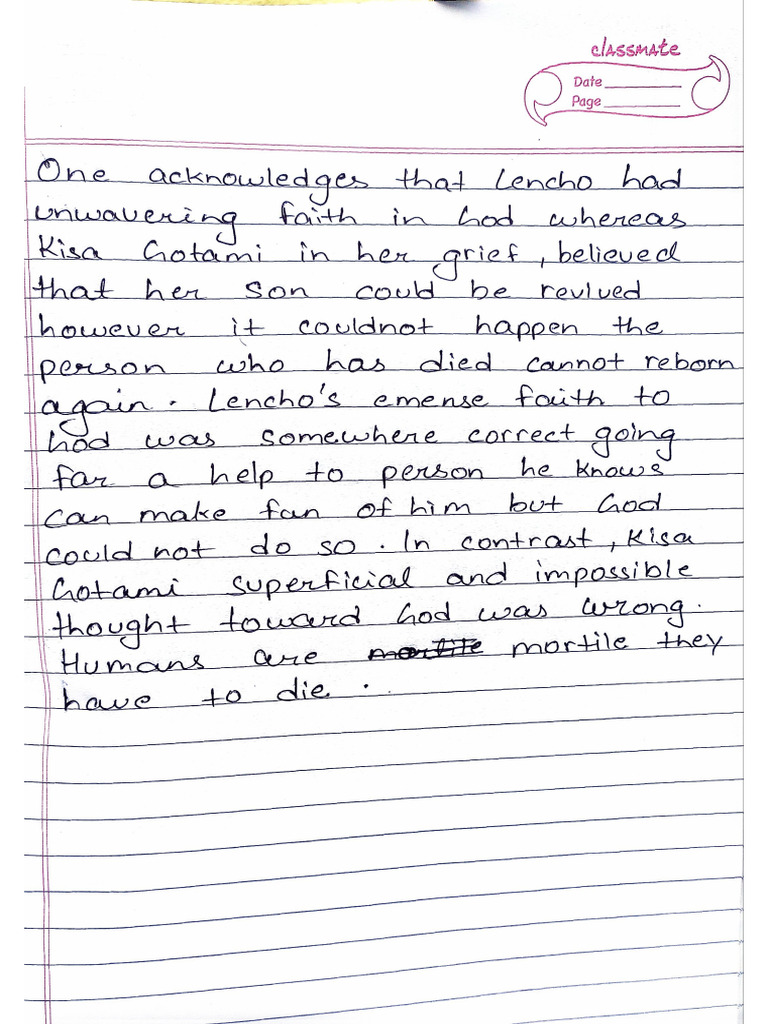 classmate
Date
Page
One acknowledges that Lencho had
unwavering faith in God whereas
Kisa Gotami in her grief, believed
that her son could be revived
however it couldnot happen the
person who has died cannot reborn
again. Lencho's emense faith to
God was somewhere correct going
far a help to person he knows
can make fun of him but God
could not do so. In contrast, Kisa
Gotami superficial and impossible
thought toward God was wrong.
Humans are mortile they
have to die.